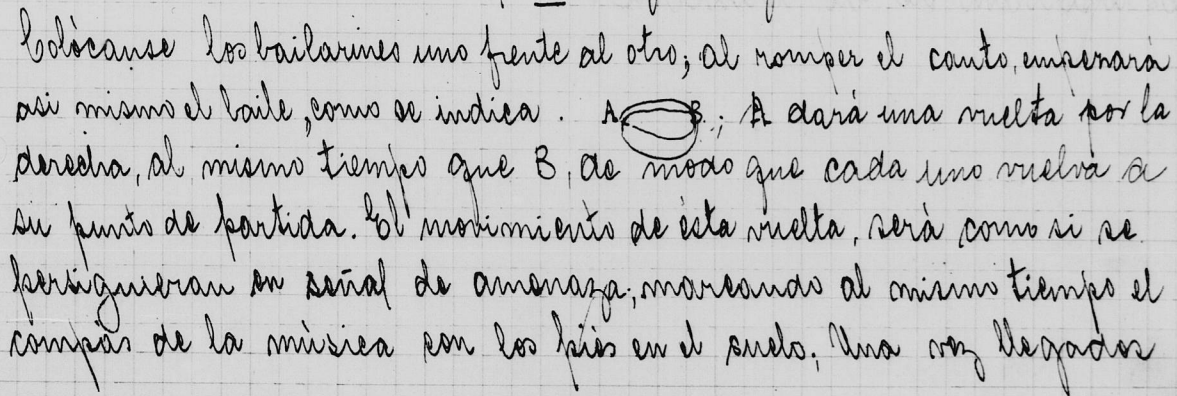 Colòcanse los bailarines uno frente al otro; al romper el canto, empezarà
asi mismo el baile, como se indica. A B.; A darà una vuelta por la
derecha, al mismo tiempo que B, de modo que cada uno vuelva a
su punto de partida. El movimiento de èsta vuelta, serà como si se
persiguieran en señal de amenaza; marcando al mismo tiempo el
compàs de la mùsica con los piès en el suelo; Una vez llegados